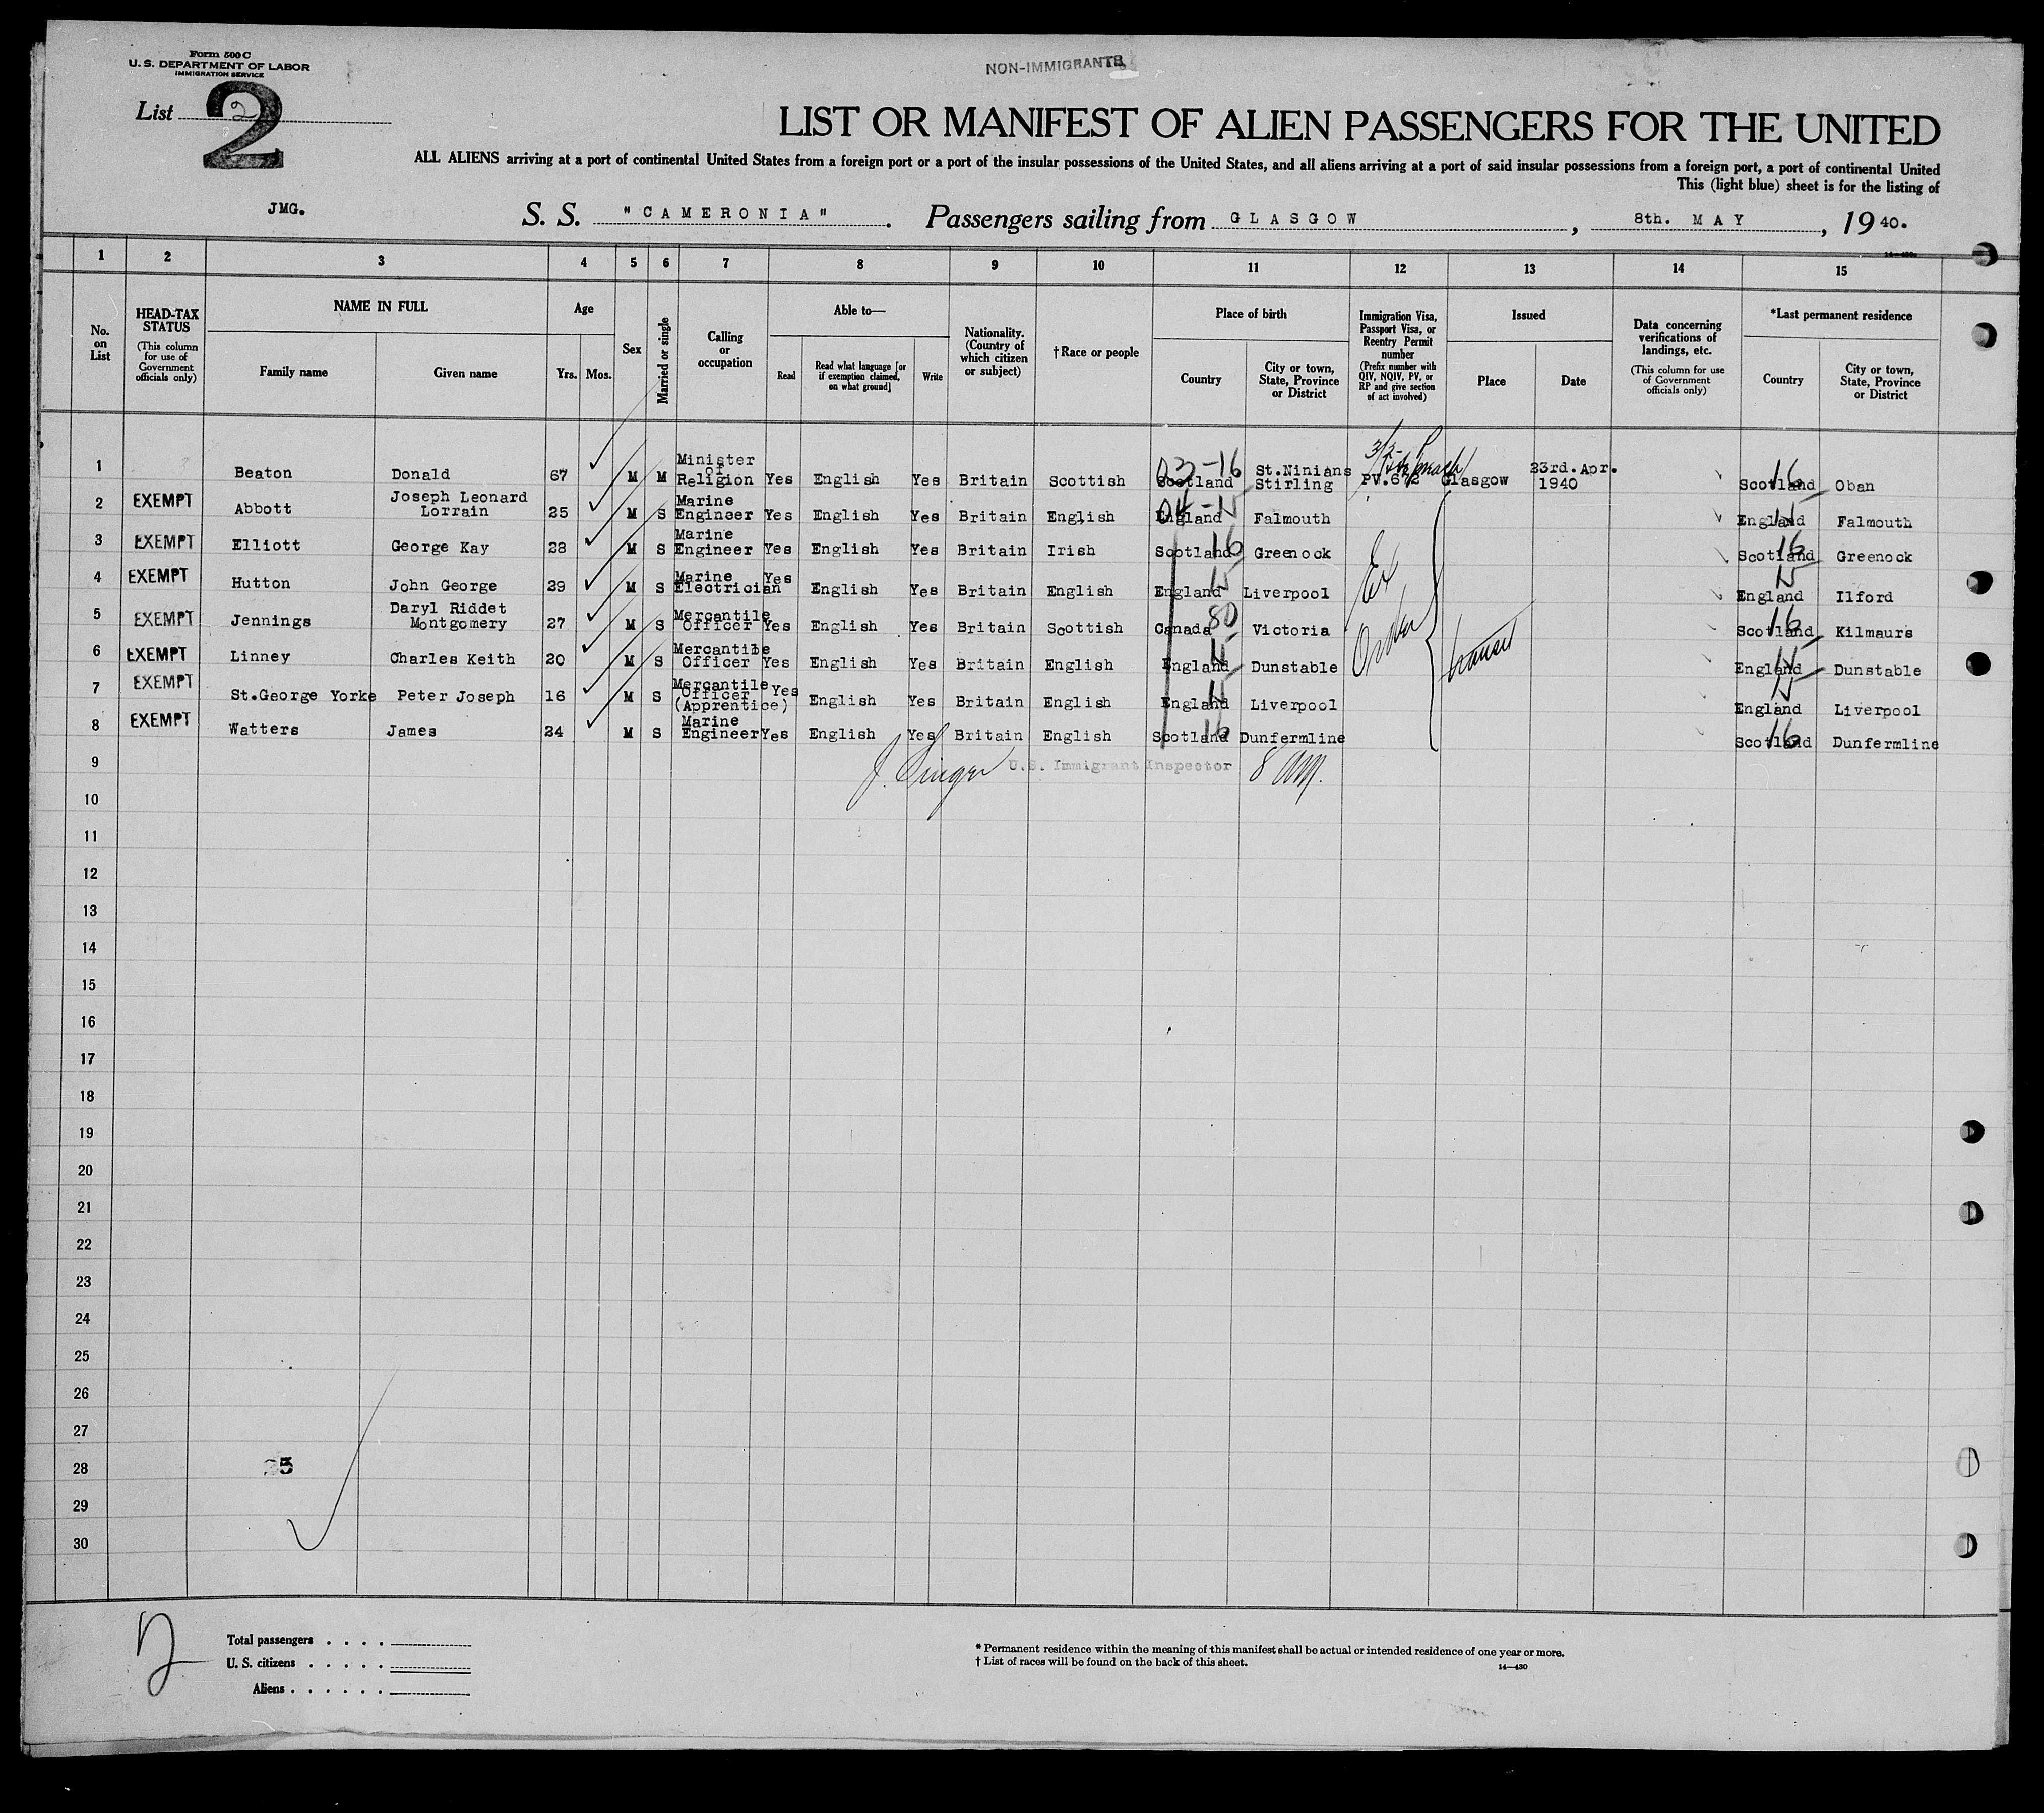 Form 500 C
U. S. DEPARTMENT OF LABOR
IMMIGRATION SERVICE
NON-IMMIGRANTS
List 2
2
LIST OR MANIFEST OF ALIEN PASSENGERS FOR THE UNITED
ALL ALIENS arriving at a port of continental United States from a foreign port or a port of the insular possessions of the United States, and all aliens arriving at a port of said insular possessions from a foreign port, a port of continental United
This (light blue) sheet is for the listing of
JMG. S. S. "CAMERONIA". Passengers sailing from GLASGOW, 8th. MAY, 1940.
1 2 3 4 5 6 7 8 9 10 11 12 13 14 15
No. on List
HEAD-TAX STATUS
(This column for use of Government officials only)
NAME IN FULL
Family name Given name
Age
Yrs. Mos.
Sex
Married or single
Calling or occupation
Able to—
Read
Read what language [or if exemption claimed, on what ground]
Write
Nationality. (Country of which citizen or subject)
†Race or people
Place of birth
Country
City or town, State, Province or District
Immigration Visa, Passport Visa, or Reentry Permit number
(Prefix number with QIV, NQIV, PV, or RP and give section of act involved)
Issued
Place Date
Data concerning verifications of landings, etc.
(This column for use of Government officials only)
*Last permanent residence
Country
City or town, State, Province or District
1 Beaton Donald 67 M M Minister of Religion Yes English Yes Britain Scottish 03-16 Scotland St.Ninians Stirling PV.672 Glasgow 23rd.Apr. 1940 16 Scotland Oban
2 EXEMPT Abbott Joseph Leonard Lorrain 25 M S Marine Engineer Yes English Yes Britain English England Falmouth England Falmouth
3 EXEMPT Elliott George Kay 28 M S Marine Engineer Yes English Yes Britain Irish Scotland 16 Greenock Scotland 16 Greenock
4 EXEMPT Hutton John George 29 M S Marine Electrician Yes English Yes Britain English England Liverpool England Ilford
5 EXEMPT Jennings Daryl Riddet Montgomery 27 M S Mercantile Officer Yes English Yes Britain Scottish Canada 80 Victoria Scotland 16 Kilmaurs
6 EXEMPT Linney Charles Keith 20 M S Mercantile Officer Yes English Yes Britain English England Dunstable England Dunstable
7 EXEMPT St.George Yorke Peter Joseph 16 M S Mercantile Officer (Apprentice) Yes English Yes Britain English England Liverpool England Liverpool
8 EXEMPT Watters James 24 M S Marine Engineer Yes English Yes Britain English Scotland 16 Dunfermline Scotland 16 Dunfermline
Ex Order
transit
9 J. Singer U.S. Immigrant Inspector 8 am.
10
11
12
13
14
15
16
17
18
19
20
21
22
23
24
25
26
27
28 25
29
30
2
Total passengers . . . .
U. S. citizens . . . . .
Aliens . . . . . .
* Permanent residence within the meaning of this manifest shall be actual or intended residence of one year or more.
† List of races will be found on the back of this sheet.
14—430